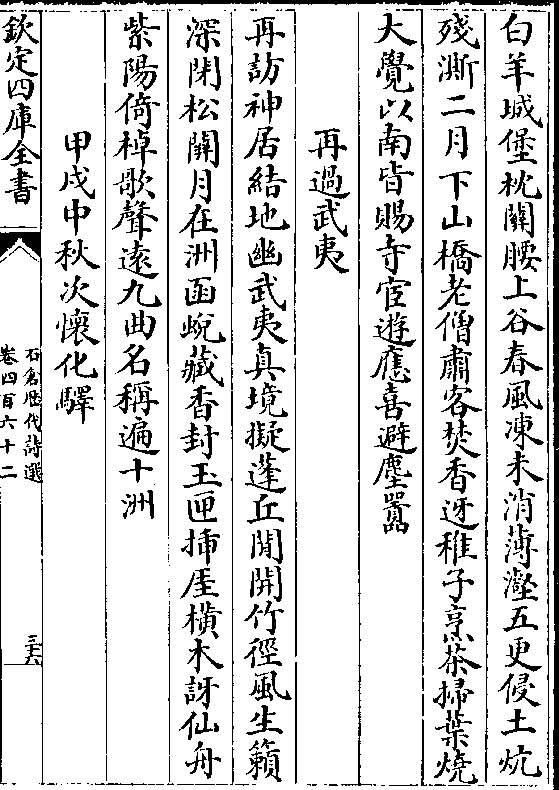 白羊城堡枕關腰上谷春風凍未消薄壂五更侵土炕
殘澌二月下山橋老僧肅客焚香迓稚子烹茶掃葉燒
大覺以南皆賜寺宦遊應喜避塵囂
再過武夷
再訪神居結地幽武夷真境擬蓬丘閒開竹徑風生籟
深閉松關月在洲函蛻藏香封玉匣揷厓橫木訝仙舟
紫陽倚棹歌聲遠九曲名稱遍十洲
甲戌中秋次懷化驛
欽定四庫全書
石倉歷代詩選
卷四百六十二
三六